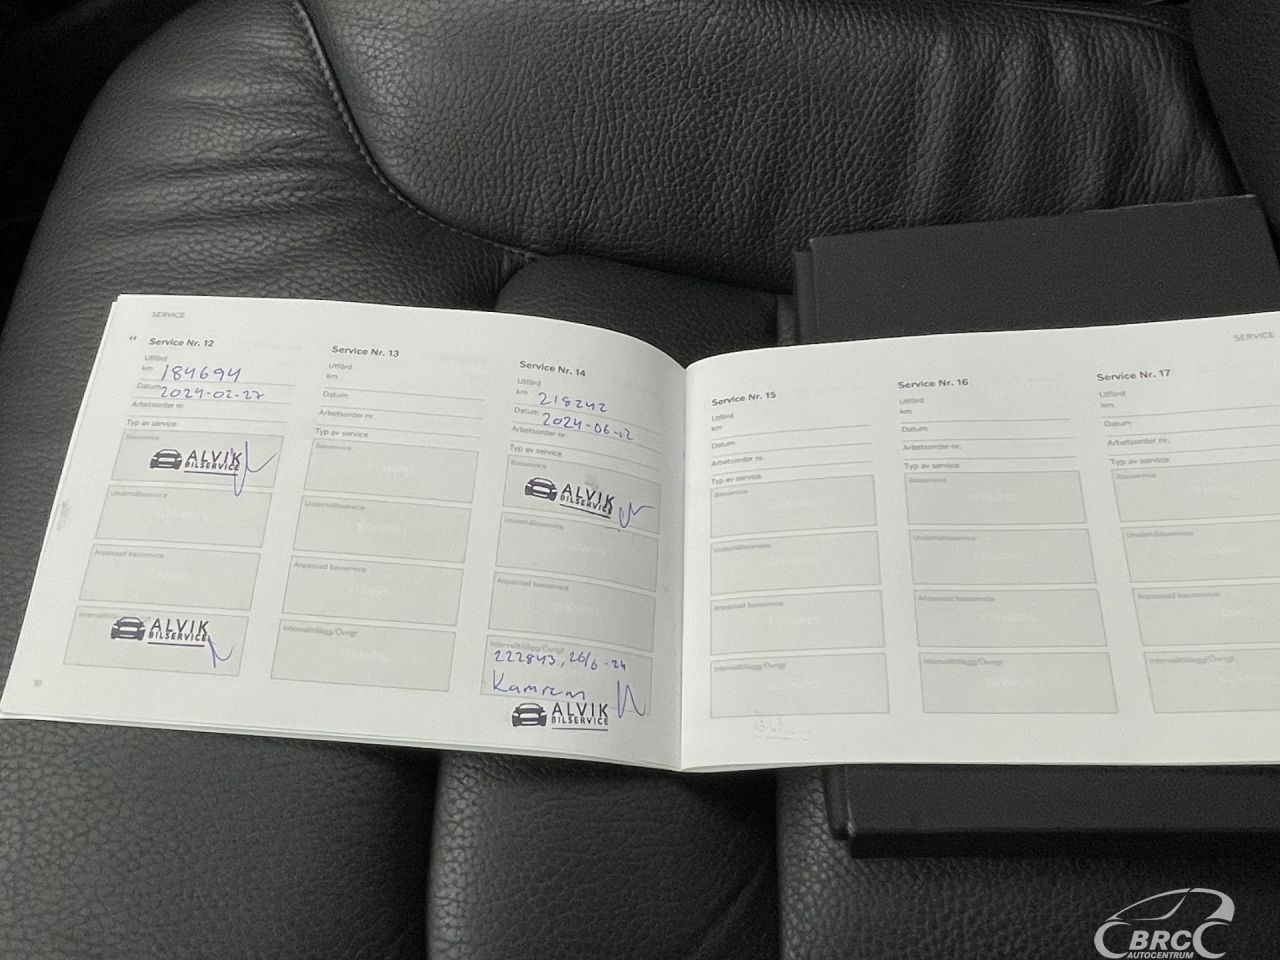 SERVICE
Service Nr. 12
Utförd
km 184694
Datum 2024-02-27
Arbetsorder nr.
Typ av service
Basservice
ALVIK
BILSERVICE
Underhållsservice
Anpassad basservice
Intervalltillägg/Övrigt
ALVIK
BILSERVICE
10
Service Nr. 13
Utförd
km
Datum
Arbetsorder nr.
Typ av service
Basservice
Underhållsservice
Anpassad basservice
Intervalltillägg/Övrigt
Service Nr. 14
Utförd
km 218242
Datum 2024-06-12
Arbetsorder nr.
Typ av service
Basservice
ALVIK
BILSERVICE
Underhållsservice
Anpassad basservice
Intervalltillägg/Övrigt
222843, 26/6-24
Kamrem
ALVIK
BILSERVICE
SERVICE
Service Nr. 15
Utförd
km
Datum
Arbetsorder nr.
Typ av service
Basservice
Underhållsservice
Anpassad basservice
Intervalltillägg/Övrigt
Service Nr. 16
Utförd
km
Datum
Arbetsorder nr.
Typ av service
Basservice
Underhållsservice
Anpassad basservice
Intervalltillägg/Övrigt
Service Nr. 17
Utförd
km
Datum
Arbetsorder nr.
Typ av service
Basservice
Underhållsservice
Anpassad basservice
Intervalltillägg/Övrigt
BRC
AUTOCENTRUM